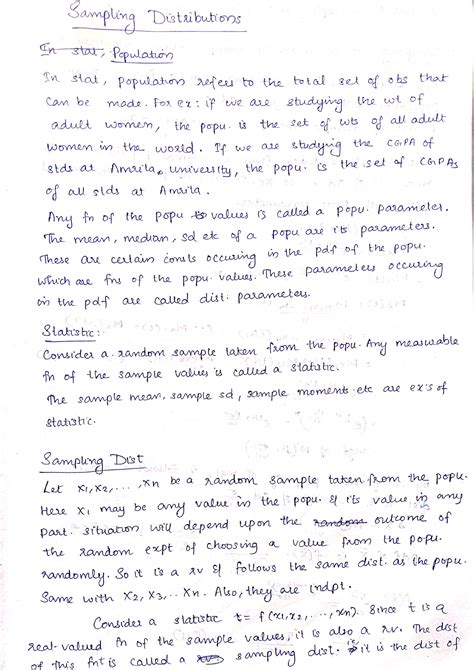 Sampling Distributions
In stat, Population
In stat, population refers to the total set of obs that
can be made. For ex: if we are studying the wt of
adult women, the popu. is the set of wts of all adult
women in the world. If we are studying the CGPA of
stds at Amrita university, the popu. is the set of CGPAs
of all stds at Amrita.
Any fn of the popu values is called a popu. parameter.
The mean, median, sd etc of a popu are its parameters.
These are certain consts occuring in the pdf of the popu.
which are fns of the popu. values. These parameters occuring
in the pdf are called dist: parameters.
Statistic:
Consider a random sample taken from the popu. Any measurable
fn of the sample values is called a statistic.
The sample mean, sample sd, sample moments etc are ex's of
statistic.
Sampling Dist
Let x1, x2, ..., xn be a random sample taken from the popu.
Here x1 may be any value in the popu. & its value in any
part. situation will depend upon the random outcome of
the random expt of choosing a value from the popu.
randomly. So it is a rv & follows the same dist. as the popu.
Same with X2, X3, ... Xn. Also, they are indpt.
Consider a statistic t = f(x1, x2, ..., xn). Since t is a
real-valued fn of the sample values, it is also a rv. The dist
of this fnt is called a sampling dist. it is the dist of